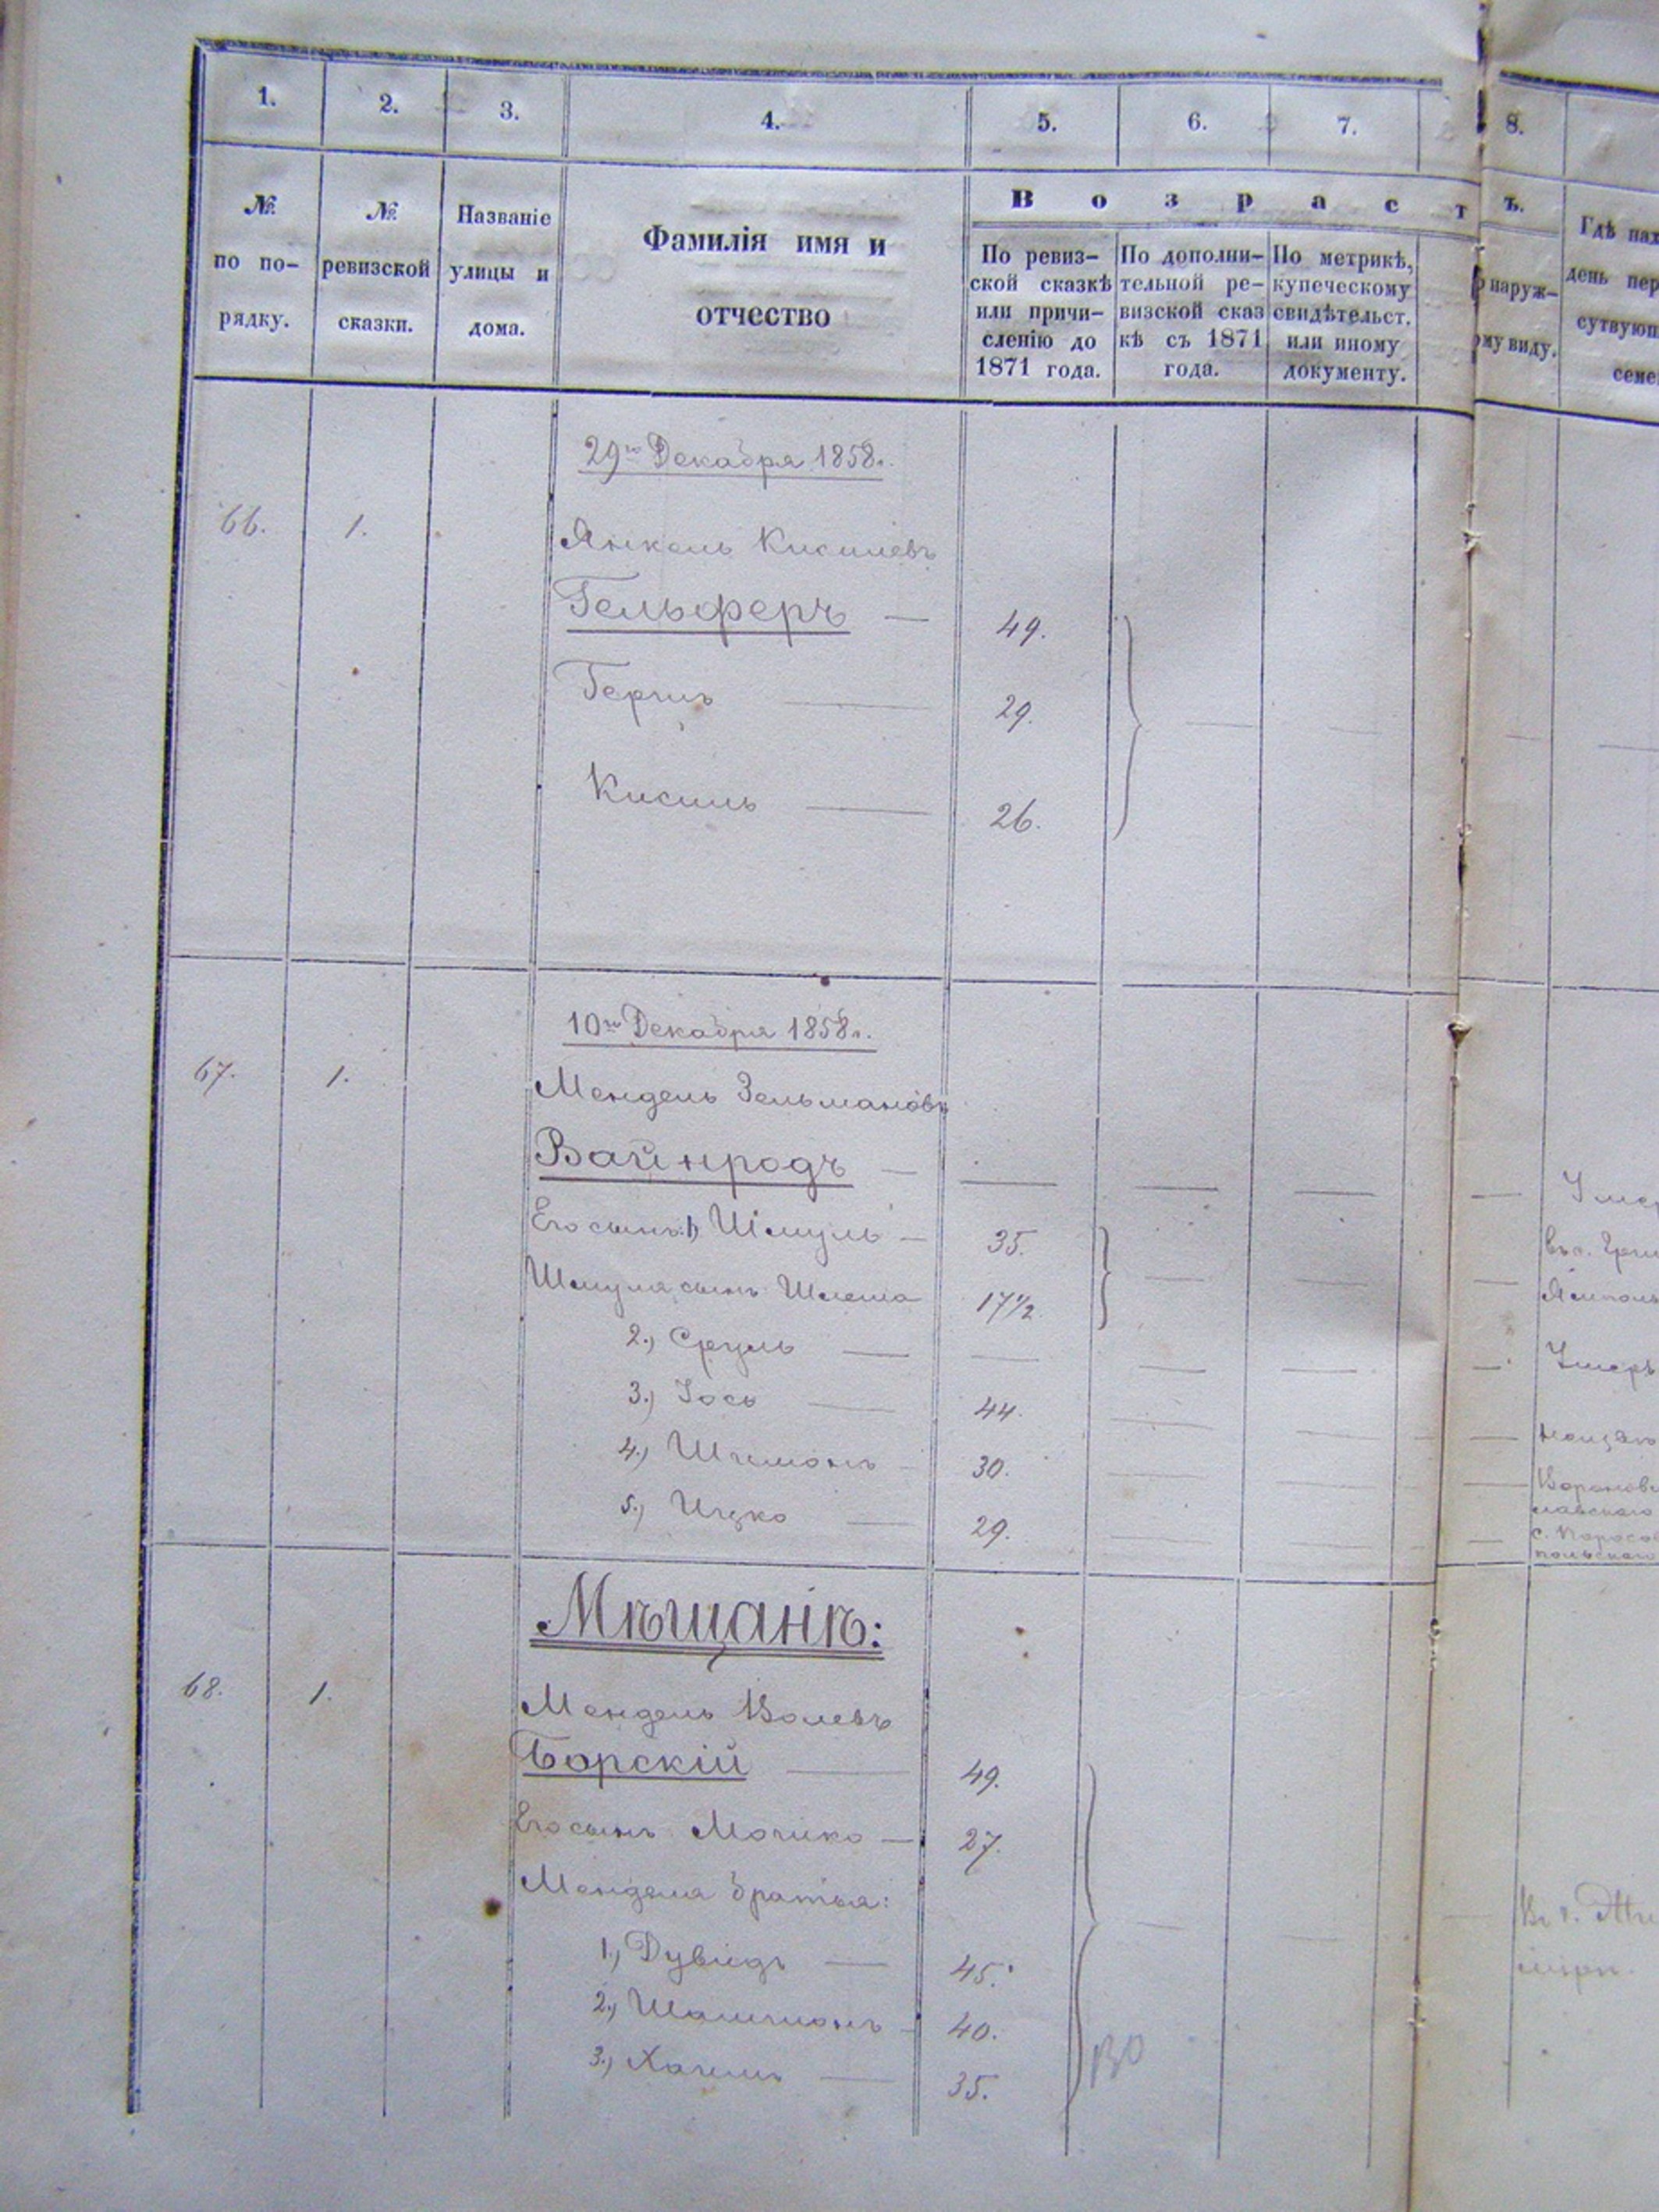 1. 2. 3. 4. 5. 6. 7. 8.
№ по по-
рядку.
№ ревизской
сказки.
Названіе
улицы и
дома.
Фамилія имя и
отчество
Возрастъ.
По ревиз-
ской сказкѣ
или причи-
сленію до
1871 года.
По дополни-
тельной ре-
визской сказ
кѣ съ 1871
года.
По метрикѣ,
купеческому
свидѣтельст.
или иному
документу.
наруж-
му виду.
Гдѣ нах
день пер
сутвующ
семе
29го Декабря 1858г.
66. 1.
Янкель Кисилевъ
Гельферъ — 49.
Гершъ — 29.
Кисиль — 26.
10го Декабря 1858г.
67. 1.
Мендель Зельмановъ
Вайнродъ — — — — —
Его сынъ: 1) Шмуль — 35.
въ с.
Шмуля сынъ Шлема 17½
Ямполь
2.) Сруль — — — — — Умеръ
3.) Іось — 44.
4.) Шлемонъ — 30.
5.) Ицко — 29.
Мѣщанѣ:
68. 1.
Мендель Волевъ
Борскій — 49.
Его сынъ Мошко — 27.
Менделя братья:
1.) Дувидъ — 45.
2.) Шаличонъ — 40.
3.) Хаимъ — 35.